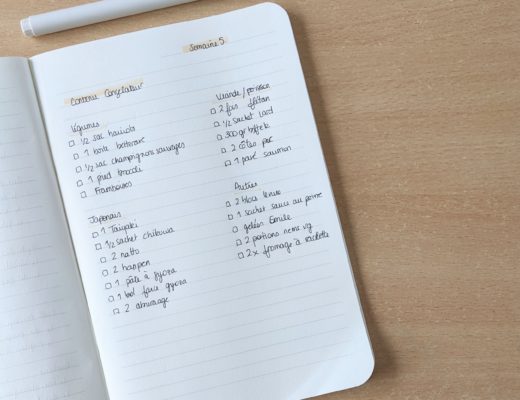 Semaine 5
Contenu Congélateur
Légumes
½ sac haricots
1 boite betterave
½ sac champignons sauvages
1 pied brocoli
Framboises
Viande/poisson
2 fois flétan
½ sachet lard
300gr bifteck
2 côtes porc
1 pavé saumon
Japonais
1 Taiyaki
½ sachet
2 natto
2 hanpen
1 pâte à gyoza
1 bol farce gyoza
2
Autres
2 blocs levure
1 sachet sauce au poivre
gelées Emile
2 portions nems vg
2x fromage à raclette